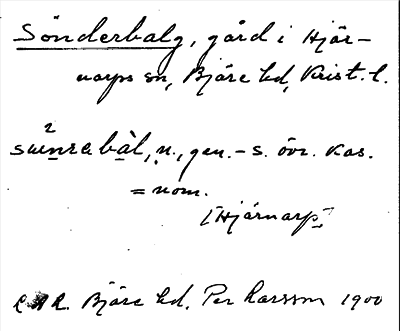 Sönderbalg, gård i Hjär-
narps sn, Bjäre hd, Krist. l.
bàl, n., gen. -s. övr. kas.
= nom.
[Hjärnarp]
Bjäre hd. Per Larsson 1900